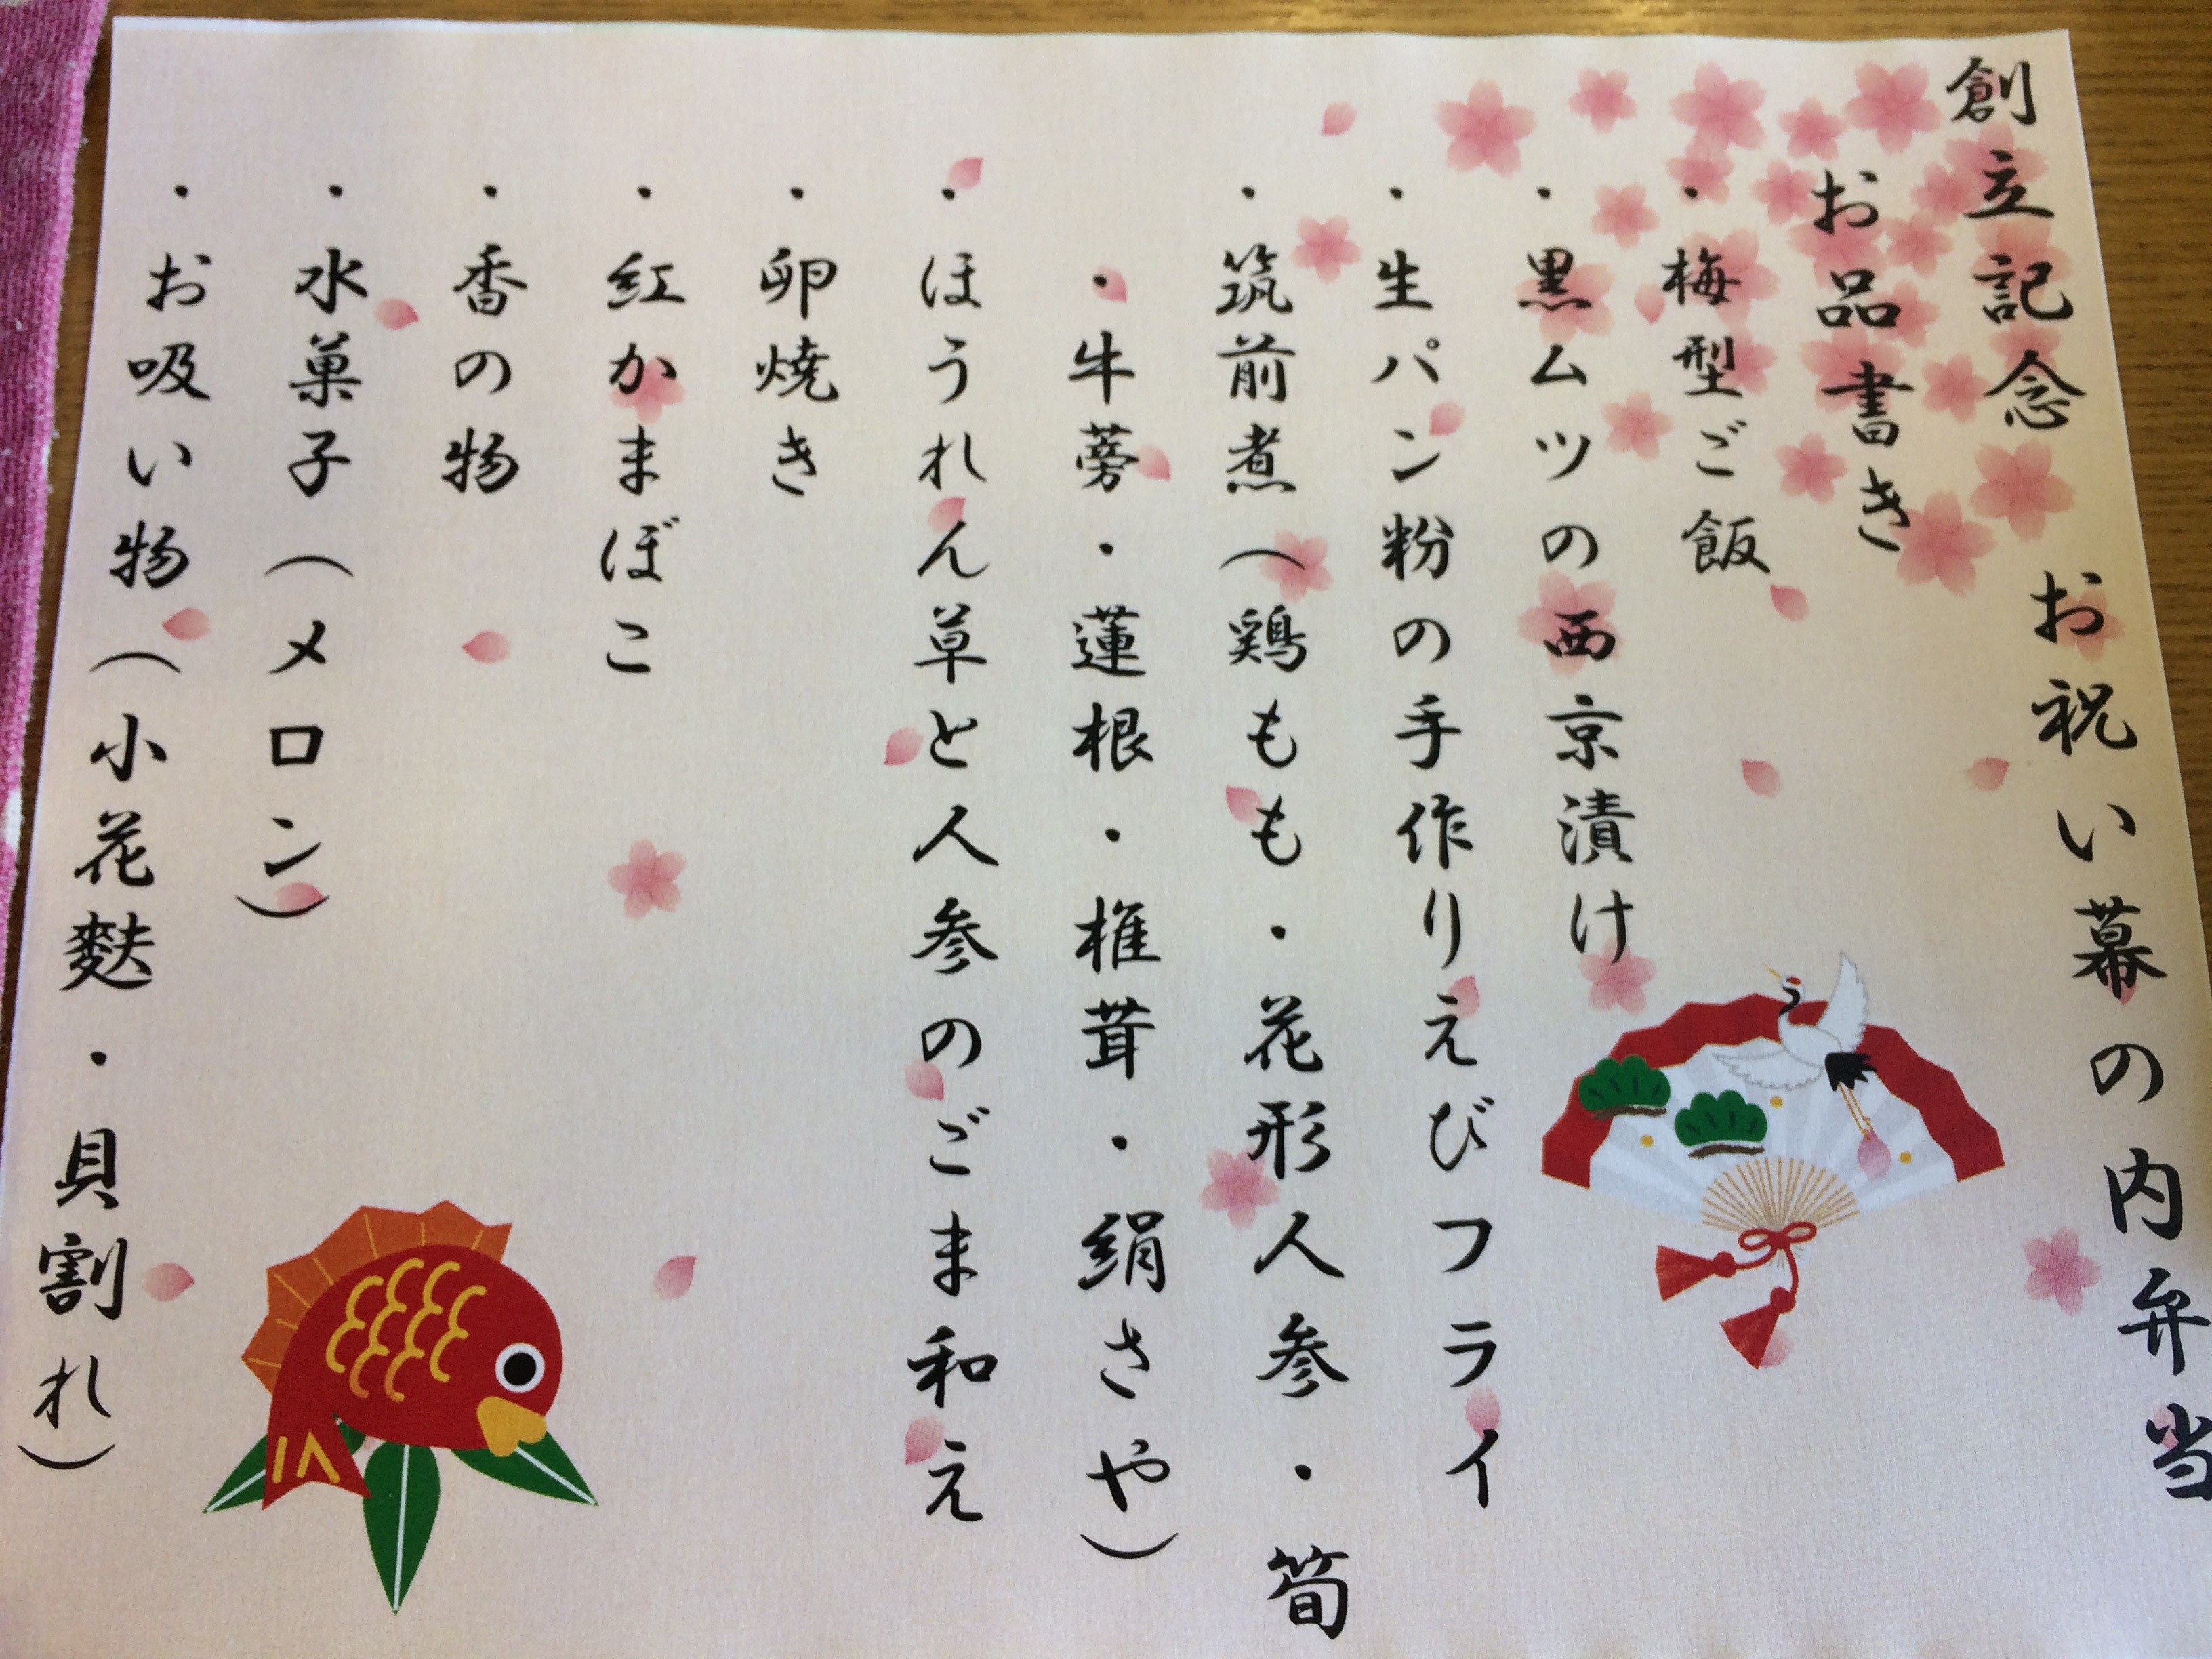 創立記念　お祝い幕の内弁当
お品書き
・梅型ご飯
・黒ムツの西京漬け
・生パン粉の手作りえびフライ
・筑前煮（鶏もも・花形人参・筍
・牛蒡・蓮根・椎茸・絹さや）
・ほうれん草と人参のごま和え
・卵焼き
・紅かまぼこ
・香の物
・水菓子（メロン）
・お吸い物（小花麩・貝割れ）